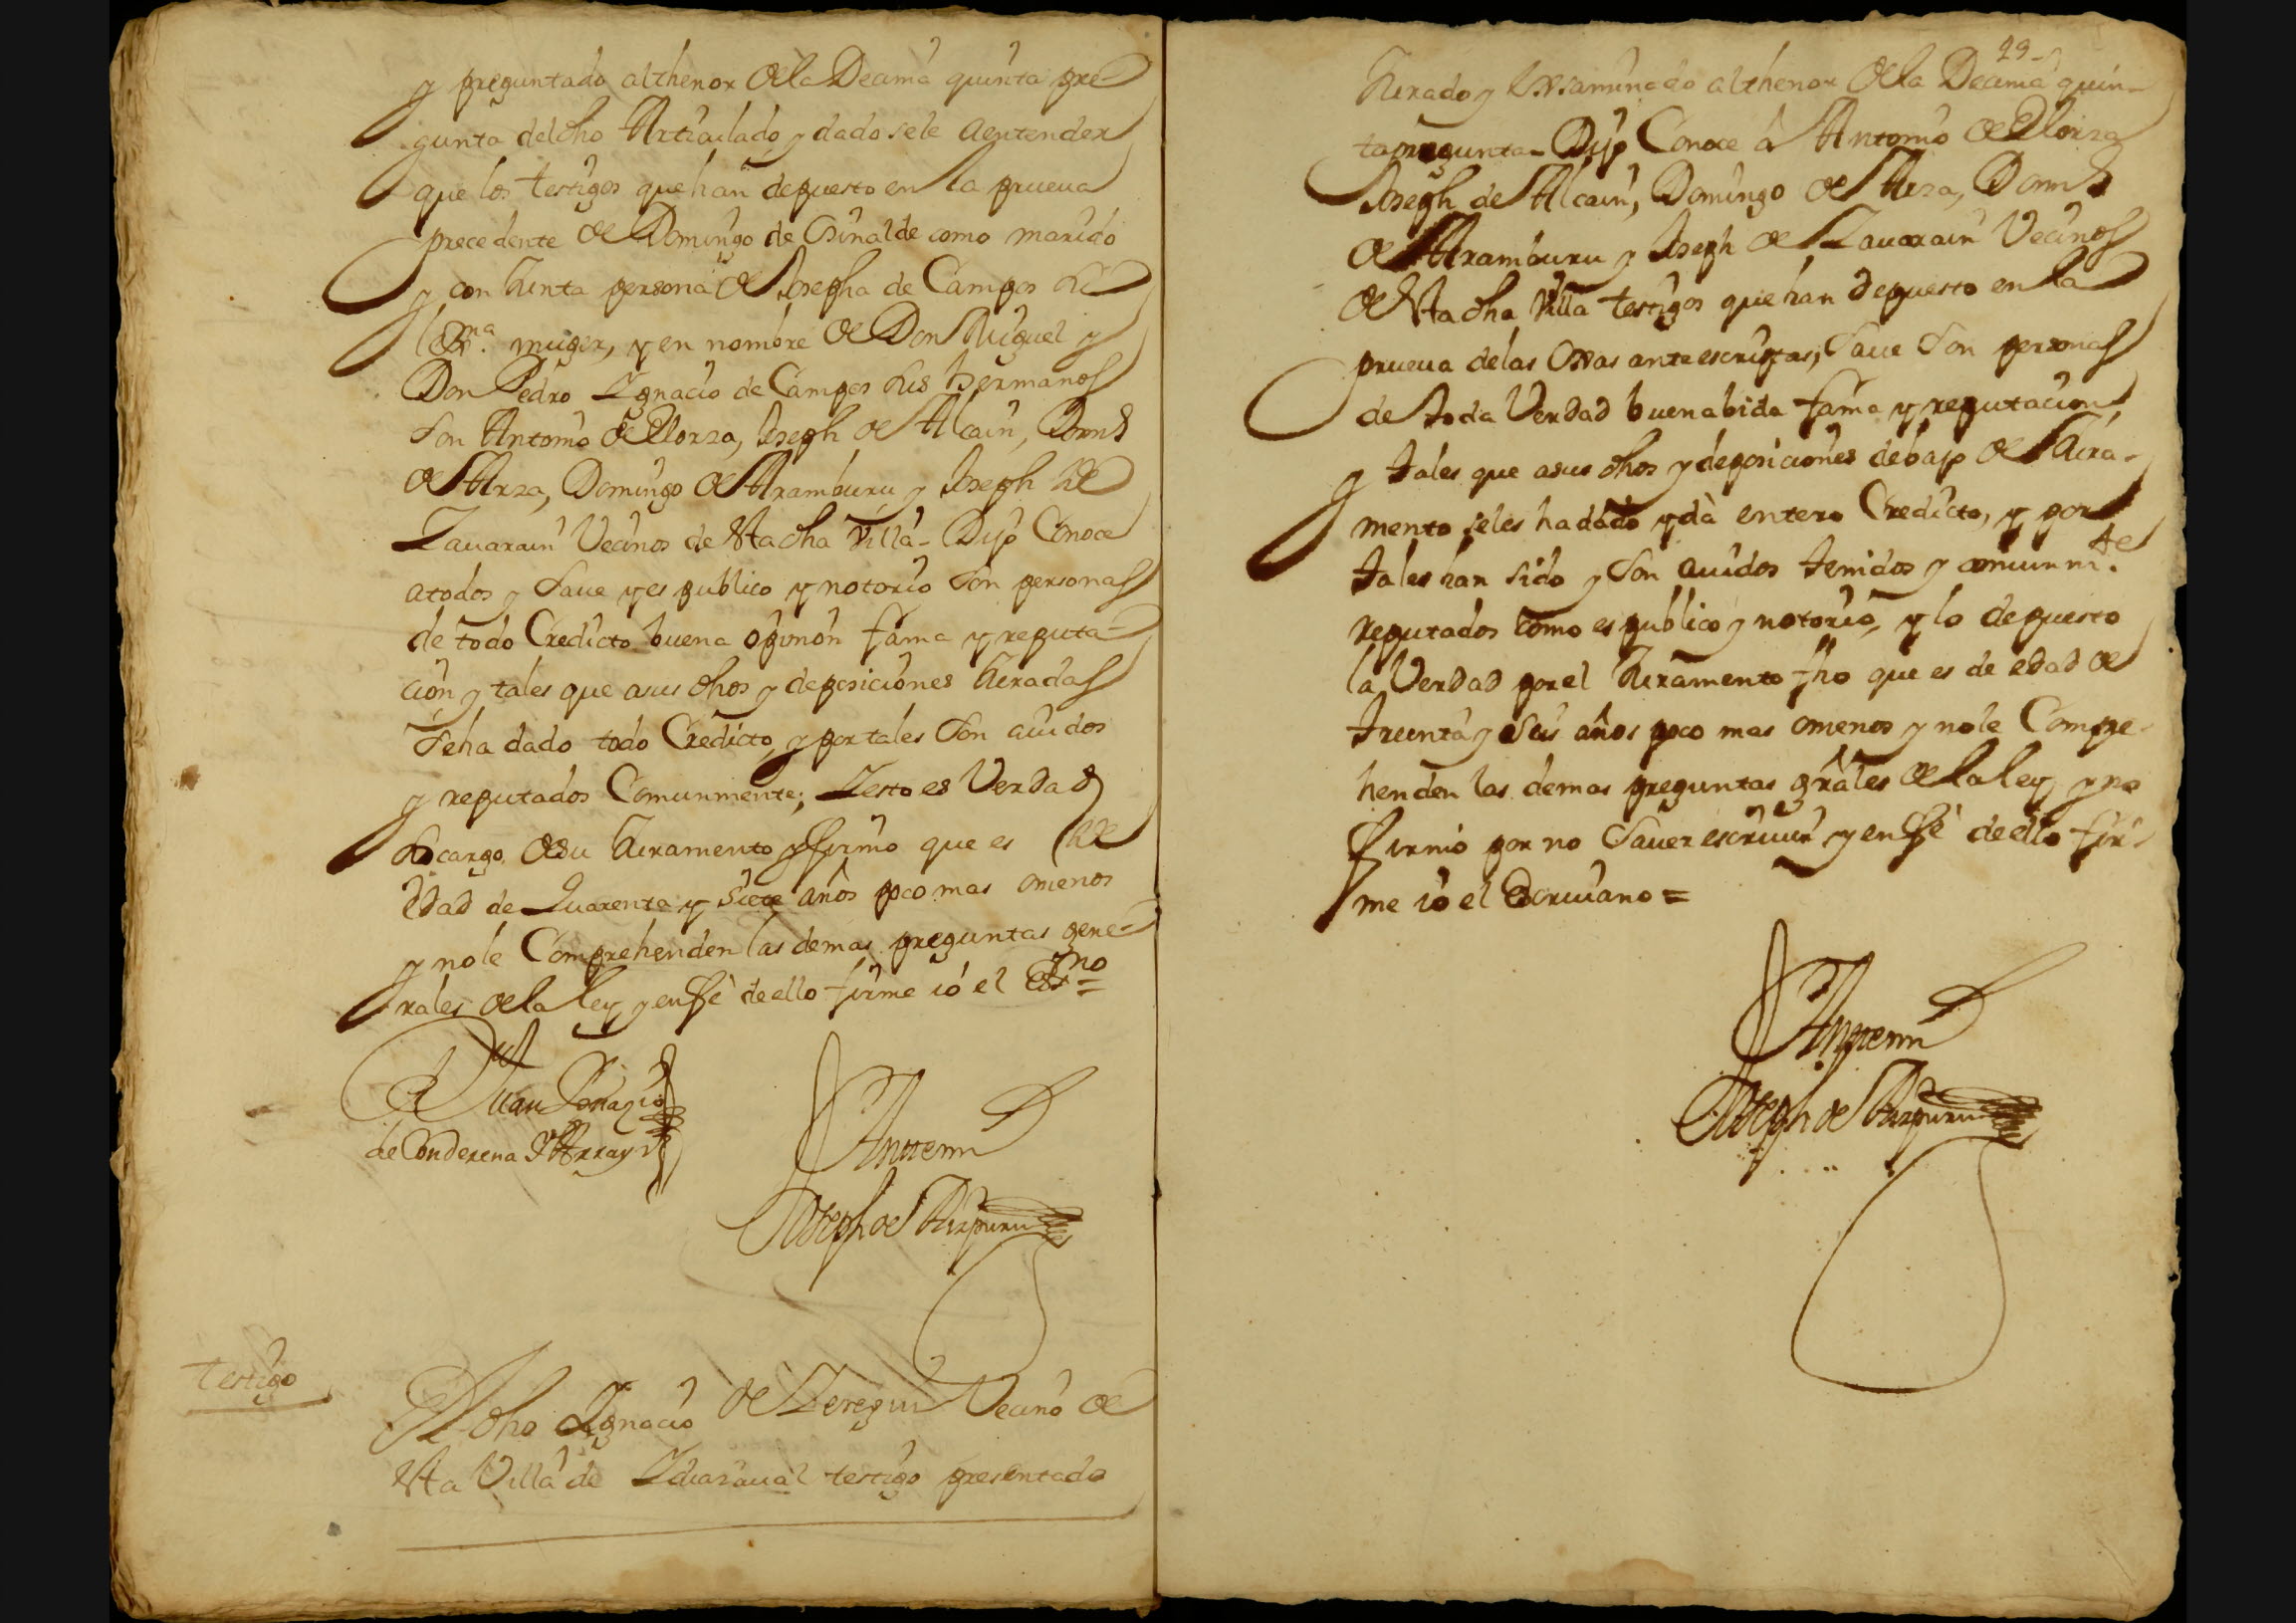 y preguntado althenor de la Decima quinta pre
gunta del dho Articulado y dadosele aentender
que los testigos que han depuesto en la prueua
precedente de Domingo de Osinalde como marido
y conjunta persona de Josepha de Campos su
lexma. muger, y en nombre de Don Miguel y
Don Pedro Ignacio de Campos sus hermanos
son Antonio de Elorza, Joseph de Alcain, Domo
de Arza, Domingo de Aramburu y Joseph de
Zauarain Vecinos de esta dha Villa - Dijo Conoce
atodos y saue yes publico y notorio son personas
de todo Credicto buena opinion fama y reputa-
cion y tales que asus dhos y deposiciones Juradas
seha dado todo Credicto, y por tales son auidos
y reputados Comunmente; Iesto es Verdad
socargo desu Juramento y firmo que es de
edad de Quarenta y siete años poco mas omenos
y nole Comprehenden las demas preguntas gene-
rales de la ley y enffe deello firme io el Essno =
Juan Ignazio
de Conderena y Array
Anttemi
Joseph de Aizpuru
testigo
El dho Ignacio de Iereguí Vecino de
esta Villa de Idiazaual testigo presentado
29
Jurado y Exsaminado althenor de la Decima quin-
ta pregunta - Dijo Conoce à Antonio de Elorza
Joseph de Alcain, Domingo de Arza, Domo
de Aramburu y Joseph de Zauarain Vecinos
de esta dha Villa testigos que han depuesto en la
prueua delas ojas anteescriptas, saue son personas
de toda Verdad buenabida fama y reputacion,
y tales que asus dhos y deposiciones debajo de Jura-
mento seles hadado ydà entero Credicto, y por
tales han sido y son auidos tenidos y comunmte.
reputados como es publico y notorio, y lo depuesto
la Verdad por el Juramento fho que es de edad de
treinta y seis años poco mas omenos y nole Compre-
henden las demas preguntas grãles de la ley, y no
firmó por no sauer escriuir y enffe deello fir-
me ió el Escriuano =
Anttemi
Joseph de Aizpuru